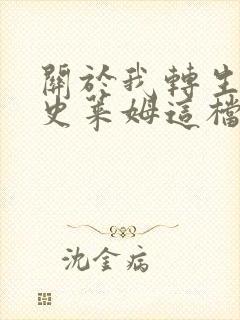 關於我轉生
史萊姆這檔
沈金病